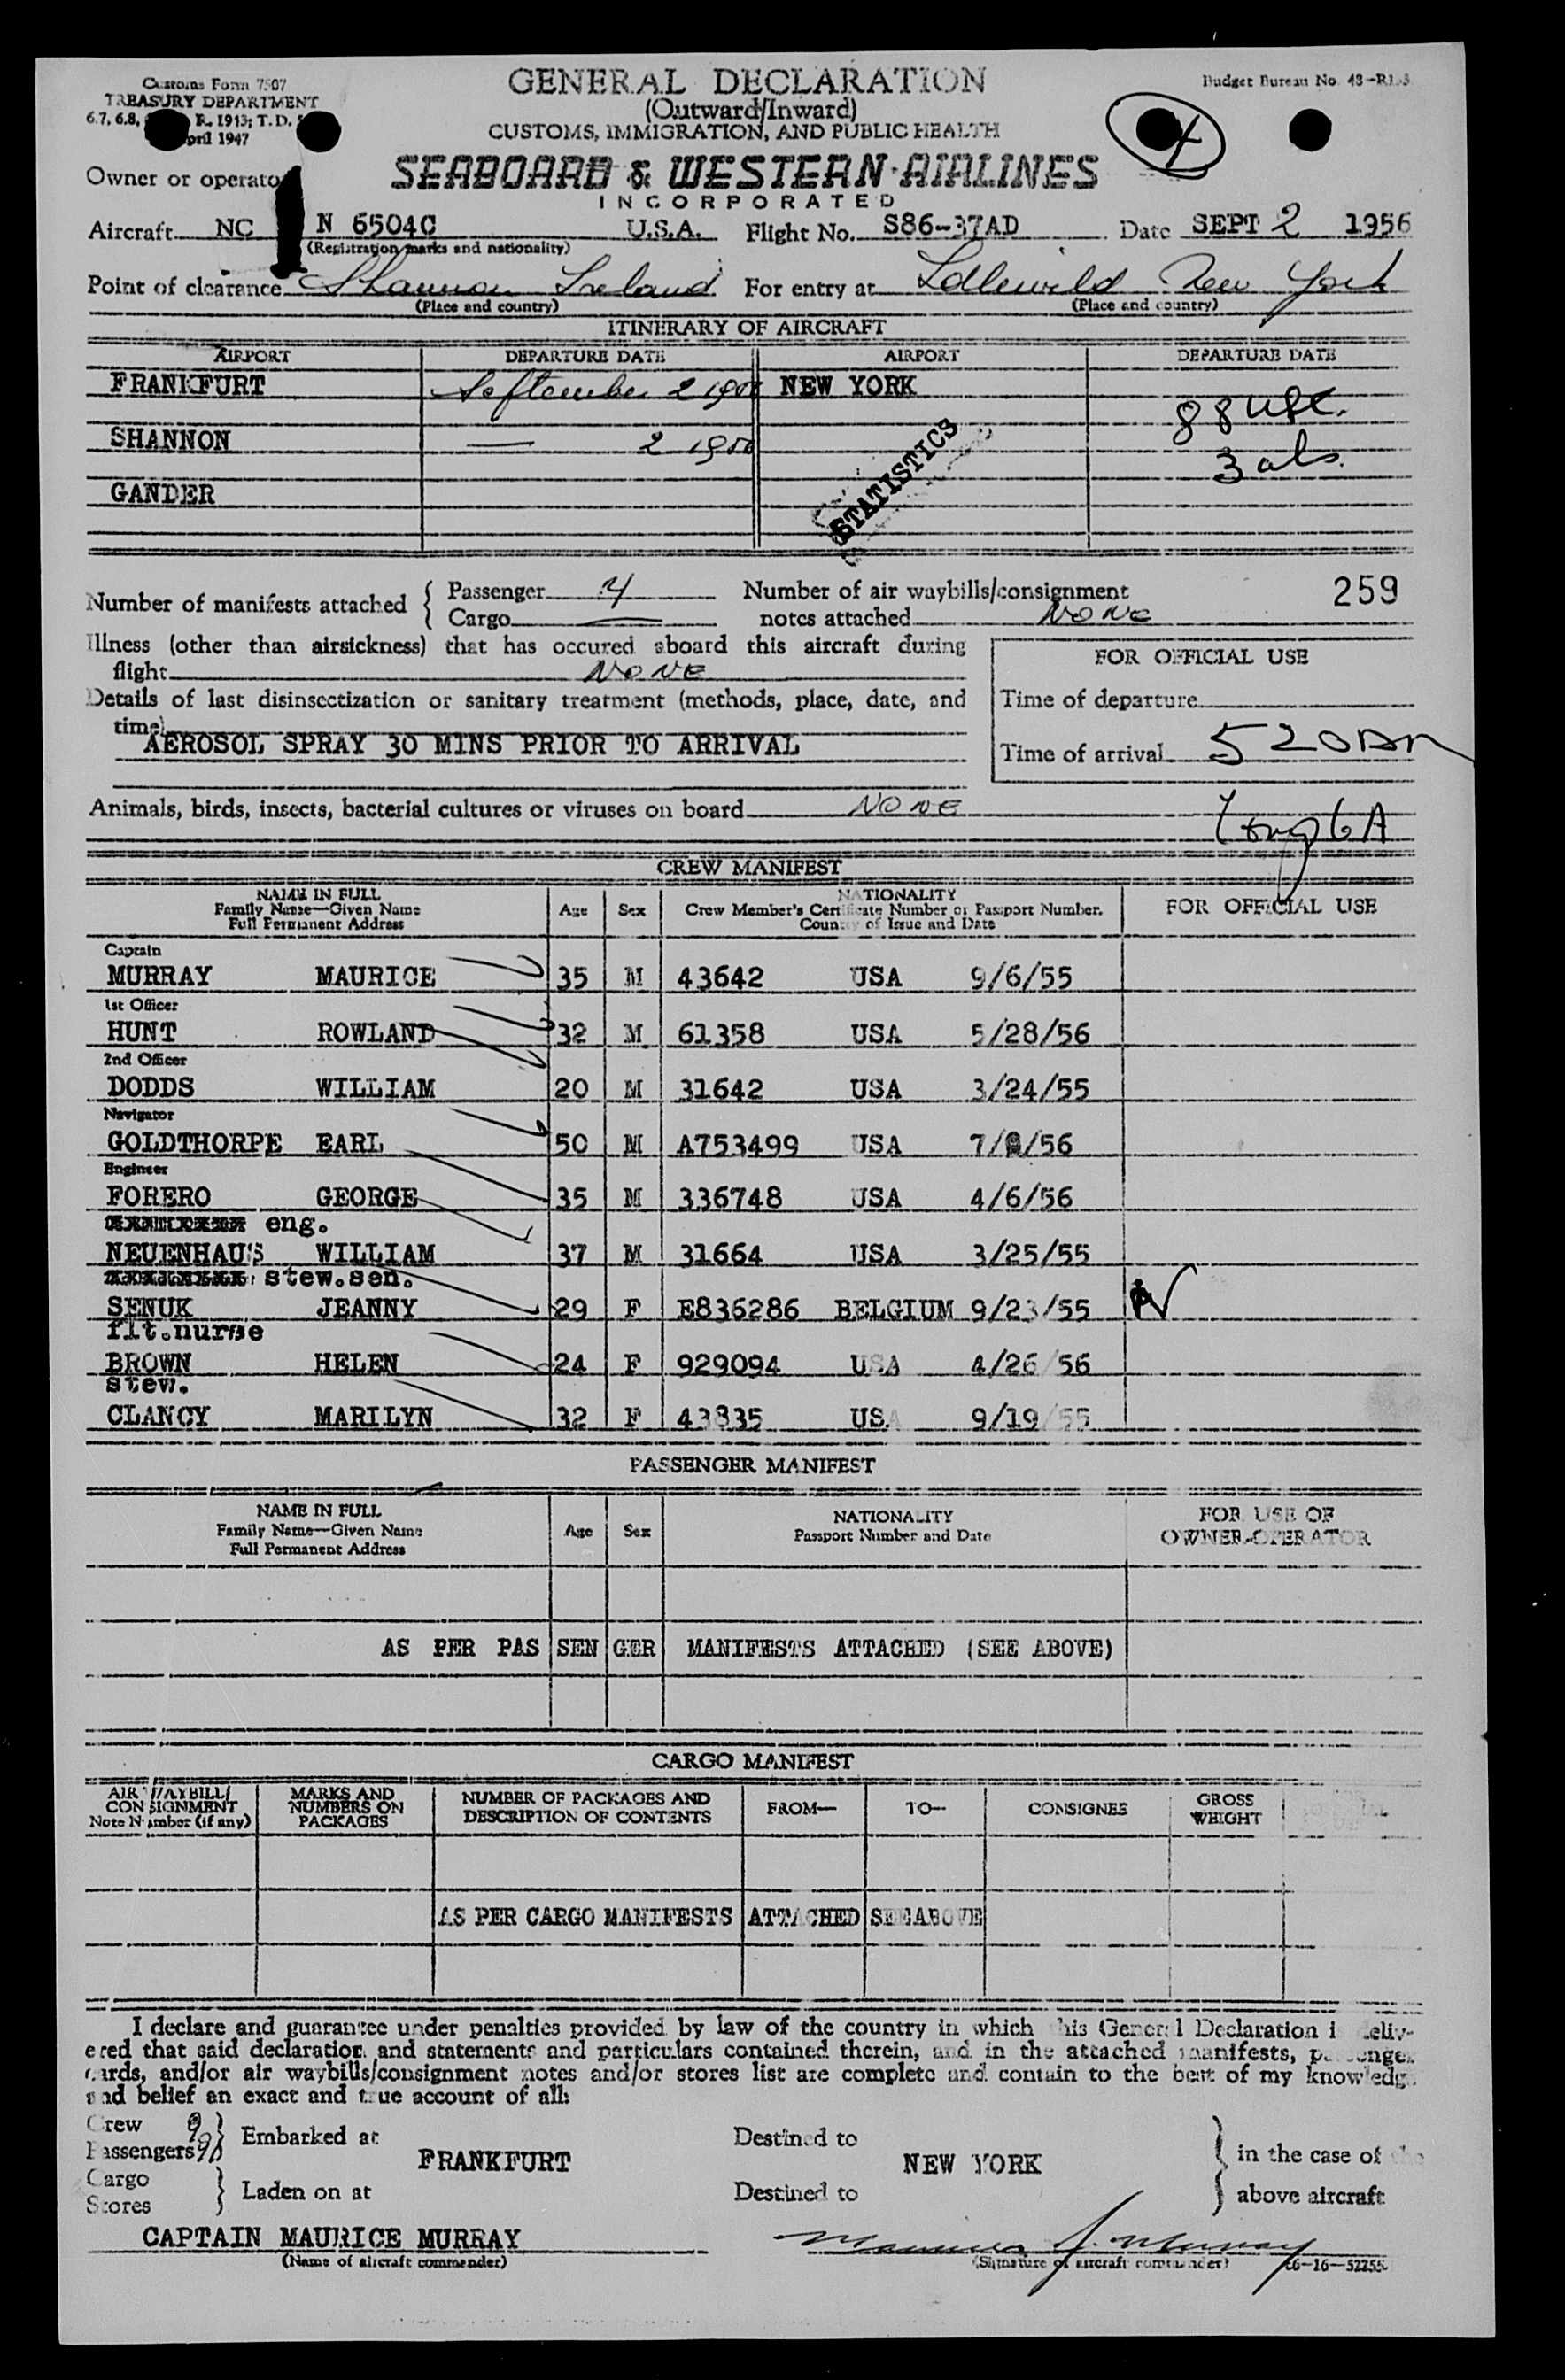 Customs Form 7507
TREASURY DEPARTMENT
6.7, 6.8, R. 1913; T. D.
April 1947
GENERAL DECLARATION
(Outward/Inward)
CUSTOMS, IMMIGRATION, AND PUBLIC HEALTH
Budget Bureau No. 43-R
Owner or operator
SEABOARD & WESTERN AIRLINES
INCORPORATED
Aircraft NC N 6504C U.S.A. Flight No. S86-37AD Date SEPT 2 1956
(Registration marks and nationality)
Point of clearance Shannon Ireland For entry at Idlewild New York
(Place and country) (Place and country)
ITINERARY OF AIRCRAFT
AIRPORT DEPARTURE DATE AIRPORT DEPARTURE DATE
FRANKFURT September 2 1956 NEW YORK
88 usc.
SHANNON — 2 1956
3 als.
STATISTICS
GANDER
Number of manifests attached { Passenger 4 Number of air waybills/consignment 259
Cargo — notes attached NONE
Illness (other than airsickness) that has occured aboard this aircraft during
flight NONE
FOR OFFICIAL USE
Details of last disinsectization or sanitary treatment (methods, place, date, and
time)
Time of departure
AEROSOL SPRAY 30 MINS PRIOR TO ARRIVAL
Time of arrival 520 am
Animals, birds, insects, bacterial cultures or viruses on board NONE
CREW MANIFEST
NAME IN FULL
Family Name—Given Name
Full Permanent Address
Age Sex
NATIONALITY
Crew Member's Certificate Number or Passport Number.
Country of Issue and Date
FOR OFFICIAL USE
Captain
MURRAY MAURICE 35 M 43642 USA 9/6/55
1st Officer
HUNT ROWLAND 32 M 61358 USA 5/28/56
2nd Officer
DODDS WILLIAM 20 M 31642 USA 3/24/55
Navigator
GOLDTHORPE EARL 50 M A753499 USA 7/ /56
Engineer
FORERO GEORGE 35 M 336748 USA 4/6/56
eng.
NEUENHAUS WILLIAM 37 M 31664 USA 3/25/55
stew.sen.
SENUK JEANNY 29 F E836286 BELGIUM 9/23/55
flt.nurse
BROWN HELEN 24 F 929094 USA 4/26/56
stew.
CLANCY MARILYN 32 F 43835 USA 9/19/55
PASSENGER MANIFEST
NAME IN FULL
Family Name—Given Name
Full Permanent Address
Age Sex
NATIONALITY
Passport Number and Date
FOR USE OF
OWNER-OPERATOR
AS PER PAS SEN GER MANIFESTS ATTACHED (SEE ABOVE)
CARGO MANIFEST
AIR WAYBILL/
CONSIGNMENT
Note Number (if any)
MARKS AND
NUMBERS ON
PACKAGES
NUMBER OF PACKAGES AND
DESCRIPTION OF CONTENTS
FROM— TO— CONSIGNEE
GROSS
WEIGHT
AS PER CARGO MANIFESTS ATTACHED SEE ABOVE
I declare and guarantee under penalties provided by law of the country in which this General Declaration is deliv-
ered that said declaration and statements and particulars contained therein, and in the attached manifests, passenger
cards, and/or air waybills/consignment notes and/or stores list are complete and contain to the best of my knowledge
and belief an exact and true account of all:
Crew 9 } Embarked at FRANKFURT Destined to NEW YORK } in the case of the
Passengers 91
Cargo } Laden on at Destined to } above aircraft
Stores
CAPTAIN MAURICE MURRAY Maurice J. Murray
(Name of aircraft commander) (Signature of aircraft commander) 16-16-52255